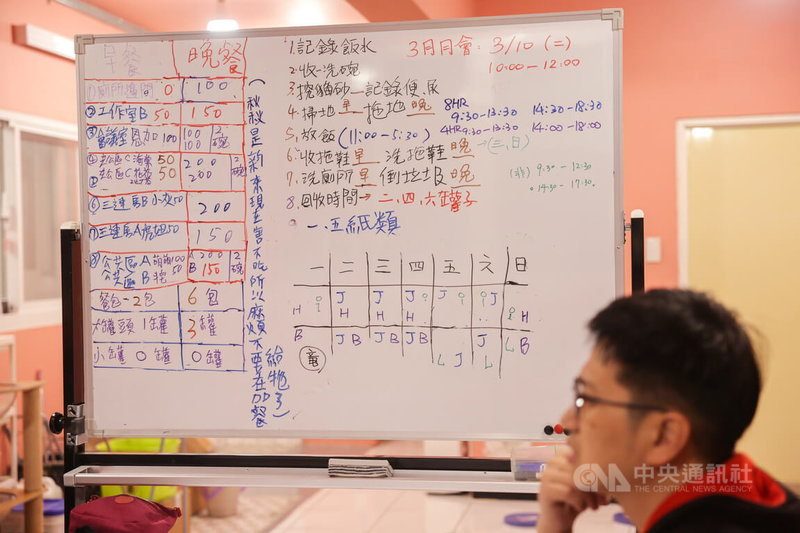 早餐 晚餐
①廁所邊間 0 100
②工作室B 50 150
100 100
100
2碗
50 200
50 200
2碗
⑥三連房B小灰50 200
⑦三連房A虎妞50 150
⑧公共區A
公共區B
100
50
A 200
B 150
2碗
餐包-2包 6包
大罐頭 1罐 3罐
小罐 0罐 0罐
(秋秋是新來現在害不吃所以麻煩不要在加餐給牠了)
1.記錄飯水
2.收-洗碗
3.挖貓砂—記錄便、尿
4.掃地早 拖地晚
5.放飯(11:00-5:30)
6.收拖鞋早 洗拖鞋晚→(三、日)
7.洗廁所早 倒垃圾晚
8.回收時間→二、四、六罐子
一、五紙類
3月月會: 3/10 (二)
10:00-12:00
8HR
9:30-13:30 14:30-18:30
4HR 9:30-13:30 14:00-18:00
9:30-12:30
14:30-17:30
一 二 三 四 五 六 日
J J J J J
H H H H H
B JB JB JB J B
L J L L
中央通訊社
THE CENTRAL NEWS AGENCY